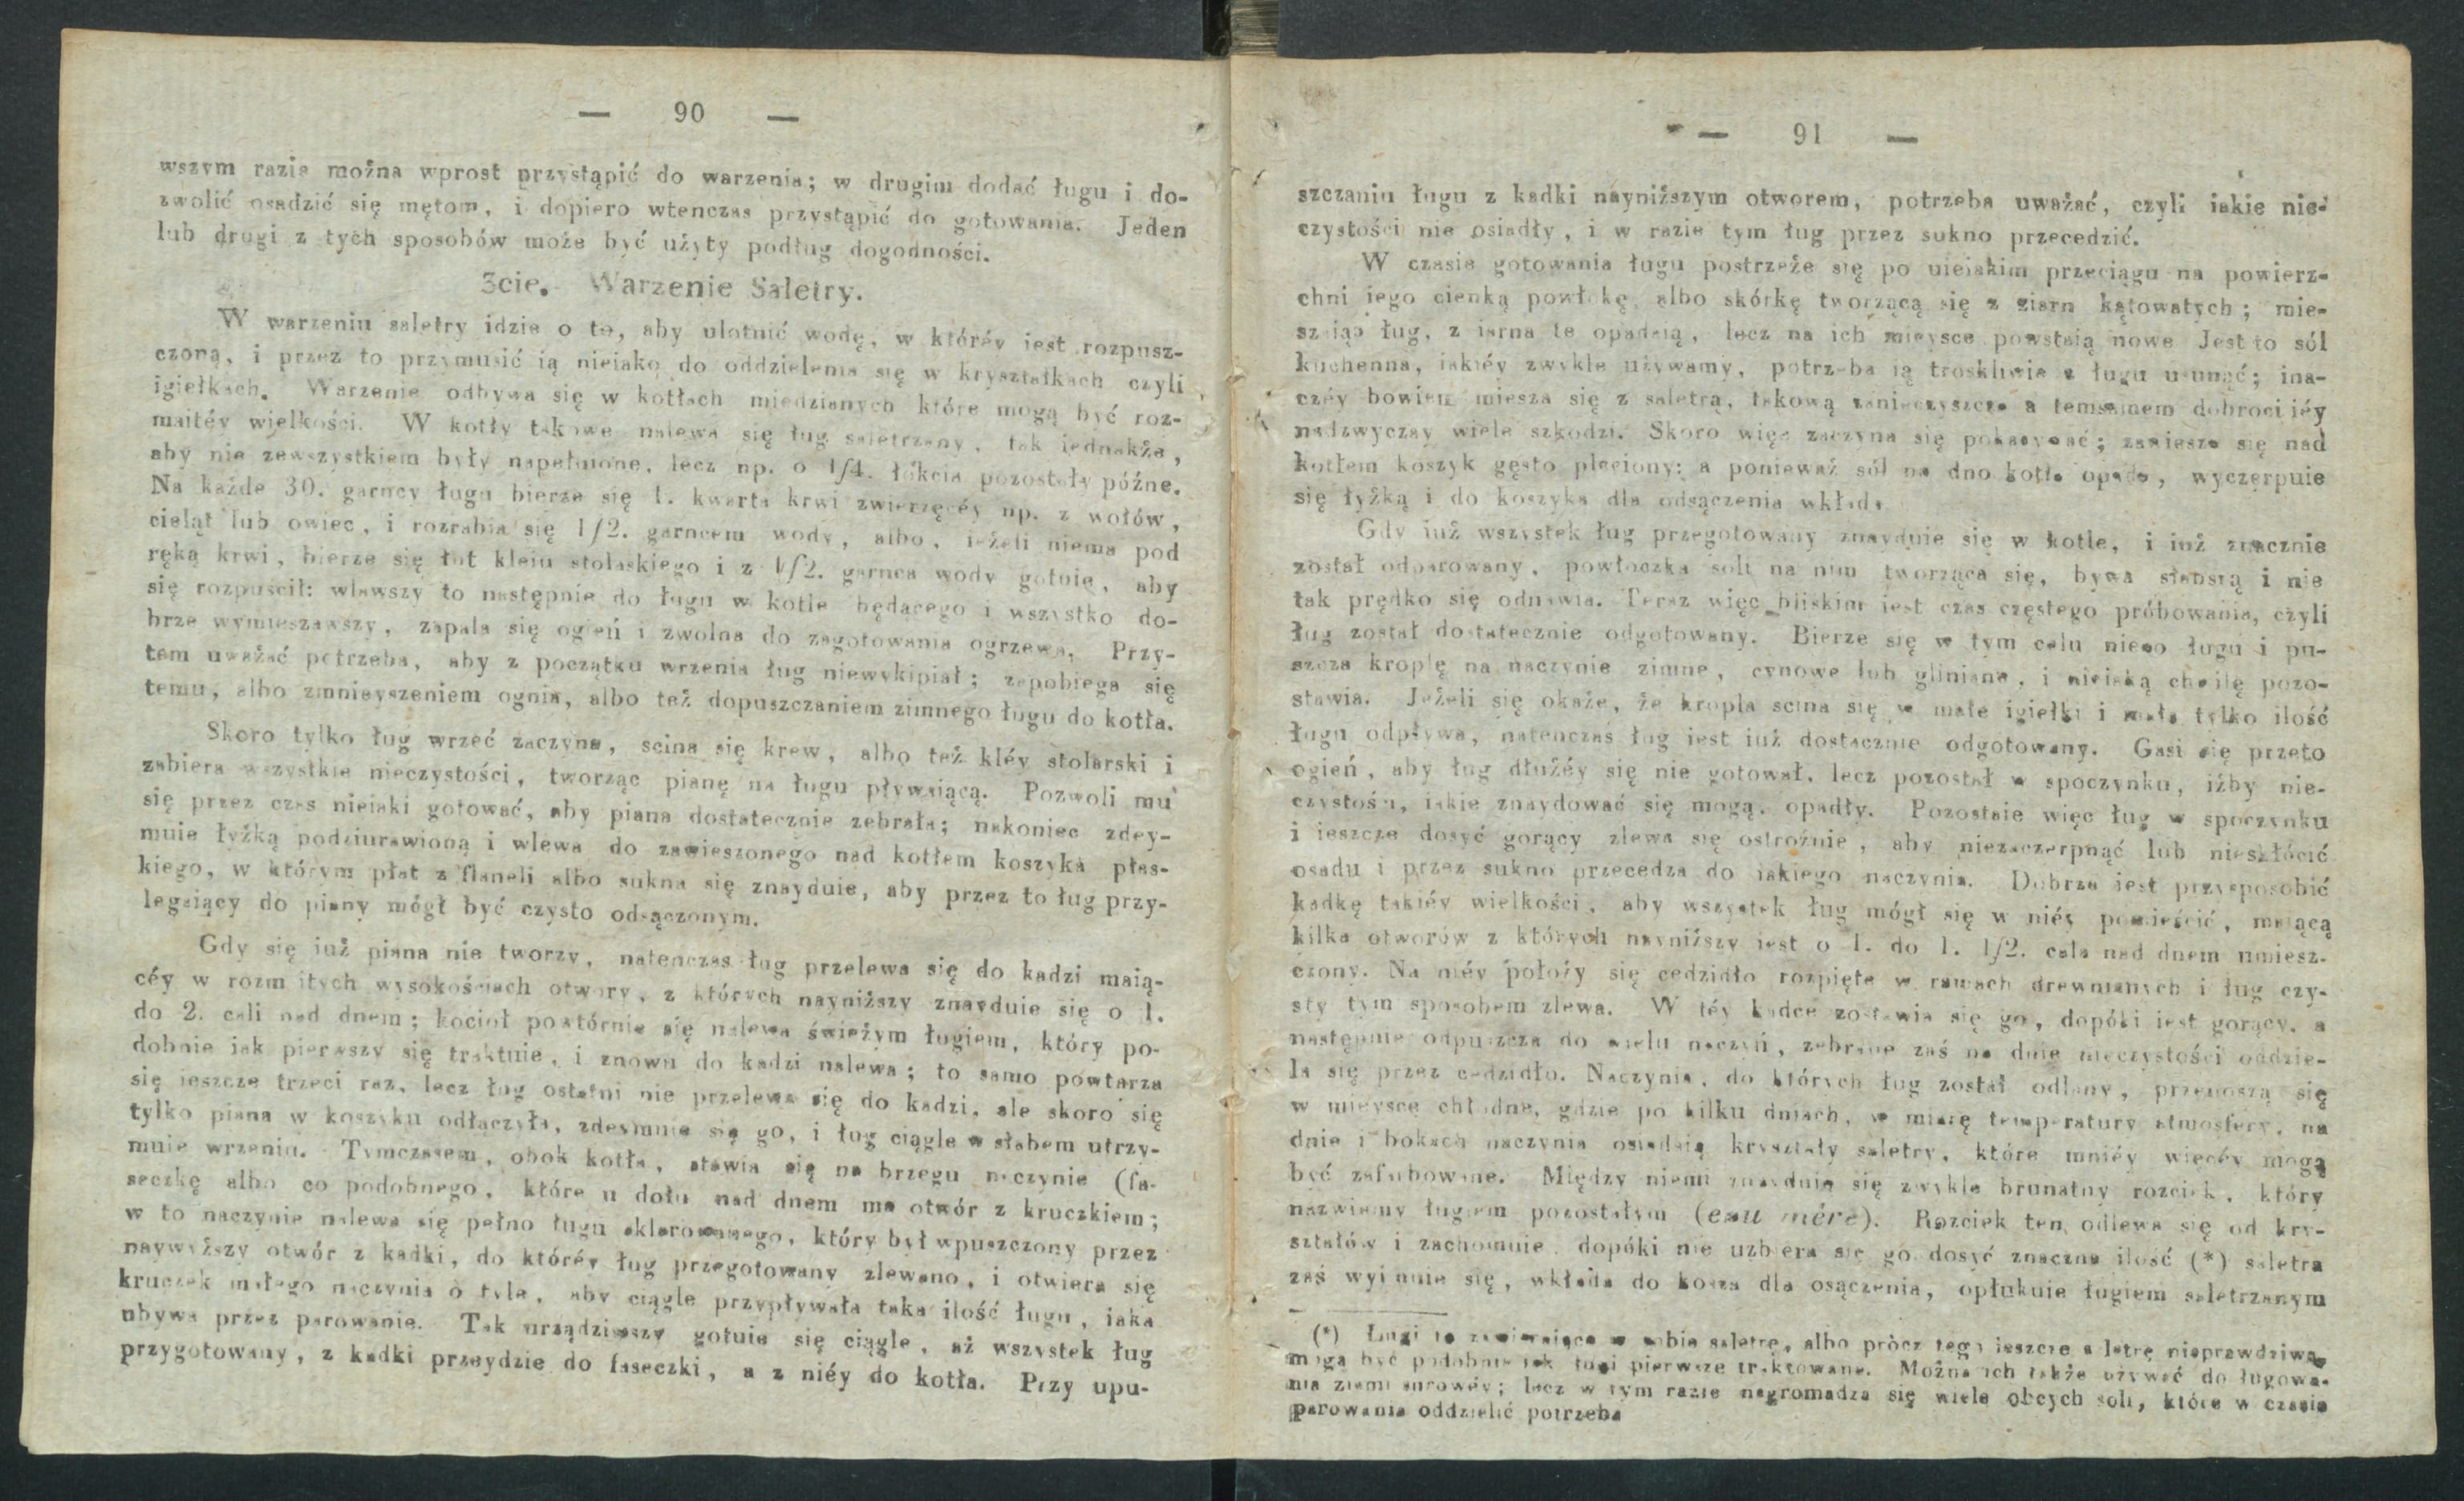 — 90 —
wszym razie można wprost przystąpić do warzenia; w drugim dodać ługu i do-
zwolić osadzić się mętom, i dopiero wtenczas przystąpić do gotowania. Jeden
lub drugi z tych sposobów może być użyty podług dogodności.
3cie. Warzenie Saletry.
W warzeniu saletry idzie o to, aby ulotnić wodę, w któréy iest rozpusz-
czoną, i przez to przymusić ią nieiako do oddzielenia się w kryształkach czyli
igiełkach. Warzenie odbywa się w kotłach miedzianych które mogą być roz-
maitéy wielkości. W kotły takowe nalewa się ług saletrzany, tak iednakże,
aby nie zewszystkiem były napełnione, lecz np. o 1/4. łokcia pozostały późne.
Na każde 30. garncy ługu bierze się 1. kwarta krwi zwierzęcéy np. z wołów,
cieląt lub owiec, i rozrabia się 1/2. garncem wody, albo, ieżeli niema pod
ręką krwi, bierze się łut kleiu stolaskiego i z 1/2. garnca wody gotuie, aby
się rozpuścił: wlawszy to następnie do ługu w kotle będącego i wszystko do-
brze wymieszawszy, zapala się ogień i zwolna do zagotowania ogrzewa. Przy-
tem uważać potrzeba, aby z początku wrzenia ług niewykipiał; zapobiega się
temu, albo zmnieyszeniem ognia, albo też dopuszczaniem zimnego ługu do kotła.
Skoro tylko ług wrzeć zaczyna, scina się krew, albo też kléy stolarski i
zabiera wszystkie nieczystości, tworząc pianę na ługu pływaiącą. Pozwoli mu
się przez czas nieiaki gotować, aby piana dostatecznie zebrała; nakoniec zdey-
muie łyżką podziurawioną i wlewa do zawieszonego nad kotłem koszyka płas-
kiego, w którym płat z flaneli albo sukna się znayduie, aby przez to ług przy-
legaiący do piany mógł być czysto odsączonym.
Gdy się iuż piana nie tworzy, natenczas ług przelewa się do kadzi maią-
céy w rozmaitych wysokościach otwory, z których nayniższy znayduie się o 1.
do 2. cali nad dnem; kocioł powtórnie się nalewa świeżym ługiem, który po-
dobnie iak pierwszy się traktuie, i znowu do kadzi nalewa; to samo powtarza
się ieszcze trzeci raz, lecz ług ostatni nie przelewa się do kadzi, ale skoro się
tylko piana w koszyku odłączyła, zdeymuie się go, i ług ciągle w słabem utrzy-
muie wrzeniu. Tymczasem, obok kotła, stawia się na brzegu naczynie (fa-
seczkę albo co podobnego, które u dołu nad dnem ma otwór z kruczkiem;
w to naczynie nalewa się pełno ługu sklarowanego, który był wpuszczony przez
naywyższy otwór z kadki, do któréy ług przegotowany zlewano, i otwiera się
kruczek małego naczynia o tyle, aby ciągle przypływała taka ilość ługu, iaka
ubywa przez parowanie. Tak urządziwszy gotuie się ciągle, aż wszystek ług
przygotowany, z kadki przeydzie do faseczki, a z niéy do kotła. Przy upu-
— 91 —
szczaniu ługu z kadki nayniższym otworem, potrzeba uważać, czyli iakie nie-
czystości nie osiadły, i w razie tym ług przez sukno przecedzić.
W czasie gotowania ługu postrzeże się po nieiakim przeciągu na powierz-
chni iego cienką powłokę, albo skórkę tworzącą się z ziarn kątowatych; mie-
szaiąc ług, z iarna te opadaią, lecz na ich mieysce powstaią nowe Jest to sól
kuchenna, iakiéy zwykle używamy, potrzeba ią troskliwie z ługu usunąć; ina-
czéy bowiem miesza się z saletrą, takową zanieczyszcza a temsamem dobroci iéy
nadzwyczay wiele szkodzi. Skoro więc zaczyna się pokazywać; zawiesza się nad
kotłem koszyk gęsto pleciony; a ponieważ sól na dno kotła opada, wyczerpuie
się łyżką i do koszyka dla odsączenia wkłada
Gdy iuż wszystek ług przegotowany znayduie się w kotle, i iuż znacznie
został odparowany, powłoczka soli na nim tworząca się, bywa słabszą i nie
tak prędko się odnawia. Teraz więc bliskim iest czas częstego próbowania, czyli
ług został dostatecznie odgotowany. Bierze się w tym celu nieco ługu i pu-
szcza kroplę na naczynie zimne, cynowe lub gliniane, i nieiaką chwilę pozo-
stawia. Jeżeli się okaże, że kropla scina się w małe igiełki i mała tylko ilość
ługu odpływa, natenczas ług iest iuż dostacznie odgotowany. Gasi się przeto
ogień, aby ług dłużéy się nie gotował, lecz pozostał w spoczynku, iżby nie-
czystości, iakie znaydować się mogą, opadły. Pozostaie więc ług w spoczynku
i ieszcze dosyć gorący zlewa się ostrożnie, aby niezaczerpnąć lub niesk​łócić
osadu i przez sukno przecedza do iakiego naczynia. Dobrze iest przysposobić
kadkę takiéy wielkości, aby wszystek ług mógł się w niéy pomieścić, maiącą
kilka otworów z których nayniższy iest o 1. do 1. 1/2. cala nad dnem umiesz-
czony. Na niéy położy się cedzidło rozpięte w ramach drewnianych i ług czy-
sty tym sposobem zlewa. W téy kadce zostawia się go, dopóki iest gorący, a
następnie odpuszcza do wielu naczyń, zebrane zaś na dnie nieczystości oddzie-
la się przez cedzidło. Naczynia, do których ług został odlany, przenoszą się
w mieysce chłodne, gdzie po kilku dniach, w miarę temperatury atmosfery, na
dnie i bokach naczynia osiadaią kryształy saletry, które mniéy więcéy mogą
być zafarbowane. Między niemi znayduie się zwykle brunatny rozciek, który
nazwiemy ługiem pozostałym (eau mére). Rozciek ten odlewa się od kry-
ształów i zachowuie, dopóki nie uzbiera się go dosyć znaczna ilość (*) saletra
zaś wyimuie się, wkłada do kosza dla osączenia, opłukuie ługiem saletrzanym
(*) Ługi te zawieraiące w sobie saletrę, albo prócz tego ieszcze saletrę nieprawdziwą,
mogą być podobnie iak ługi pierwsze traktowane. Można ich także używać do ługowa-
nia ziemi surowéy; lecz w tym razie nagromadza się wiele obcych soli, które w czasie
parowania oddzielić potrzeba